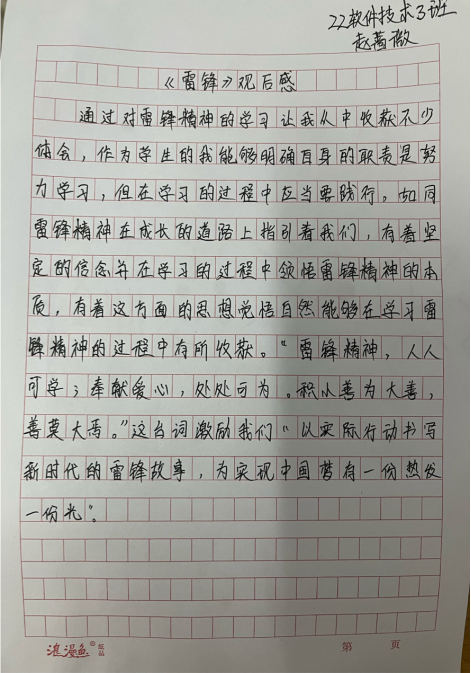 22软件技术3班
赵蔷薇
《雷锋》观后感
通过对雷锋精神的学习让我从中收获不少
体会，作为学生的我能够明确自身的职责是努
力学习，但在学习的过程中应当要践行，如同
雷锋精神在成长的道路上指引着我们，有着坚
定的信念并在学习的过程中领悟雷锋精神的本
质，有着这方面的思想觉悟自然能够在学习雷
锋精神的过程中有所收获。“雷锋精神，人人
可学；奉献爱心，处处可为。积小善为大善，
善莫大焉。”这台词激励我们“以实际行动书写
新时代的雷锋故事，为实现中国梦有一份热发
一份光”。
浪漫鱼
第 页